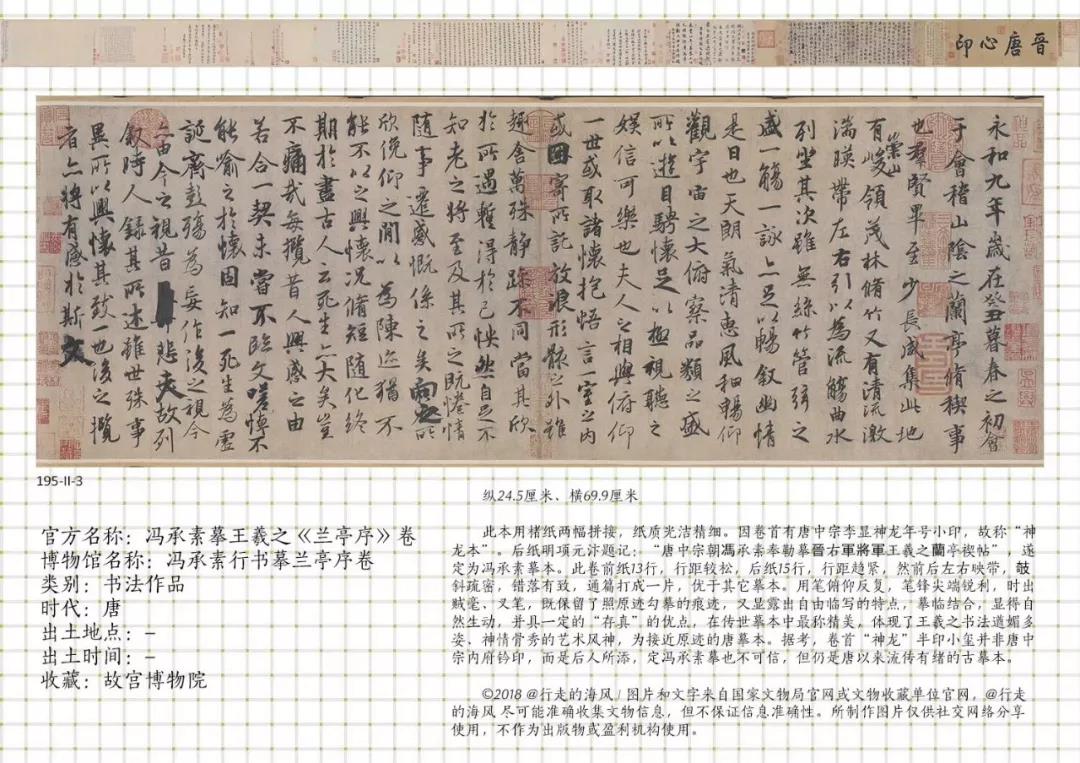 晉唐心印
永和九年歲在癸丑暮春之初會
于會稽山陰之蘭亭脩稧事
也群賢畢至少長咸集此地
有崇山峻領茂林脩竹又有清流激
湍暎帶左右引以為流觴曲水
列坐其次雖無絲竹管弦之
盛一觴一詠亦足以暢敘幽情
是日也天朗氣清惠風和暢仰
觀宇宙之大俯察品類之盛
所以遊目騁懷足以極視聽之
娛信可樂也夫人之相與俯仰
一世或取諸懷抱悟言一室之內
或因寄所託放浪形骸之外雖
趣舍萬殊靜躁不同當其欣
於所遇蹔得於己怏然自足不
知老之將至及其所之既惓情
隨事遷感慨係之矣向之所
欣俛仰之閒以為陳迹猶不
能不以之興懷況脩短隨化終
期於盡古人云死生亦大矣豈
不痛哉每攬昔人興感之由
若合一契未嘗不臨文嗟悼不
能喻之於懷固知一死生為虛
誕齊彭殤為妄作後之視今
亦由今之視昔悲夫故列
敘時人錄其所述雖世殊事
異所以興懷其致一也後之攬
者亦將有感於斯文
195-II-3
官方名称：冯承素摹王羲之《兰亭序》卷
博物馆名称：冯承素行书摹兰亭序卷
类别：书法作品
时代：唐
出土地点：-
出土时间：-
收藏：故宫博物院
纵24.5厘米、横69.9厘米
此本用楮纸两幅拼接，纸质光洁精细。因卷首有唐中宗李显神龙年号小印，故称“神
龙本”。后纸明项元汴题记：“唐中宗朝馮承素奉勒摹晉右軍將軍王羲之蘭亭禊帖”，遂
定为冯承素摹本。此卷前纸13行，行距较松，后纸15行，行距趋紧，然前后左右映带，攲
斜疏密，错落有致，通篇打成一片，优于其它摹本。用笔俯仰反复，笔锋尖端锐利，时出
贼毫、叉笔，既保留了照原迹勾摹的痕迹，又显露出自由临写的特点，摹临结合，显得自
然生动，并具一定的“存真”的优点，在传世摹本中最称精美，体现了王羲之书法遒媚多
姿、神情骨秀的艺术风神，为接近原迹的唐摹本。据考，卷首“神龙”半印小玺并非唐中
宗内府钤印，而是后人所添，定冯承素摹也不可信，但仍是唐以来流传有绪的古摹本。
©2018 @行走的海风 / 图片和文字来自国家文物局官网或文物收藏单位官网，@行走
的海风 尽可能准确收集文物信息，但不保证信息准确性。所制作图片仅供社交网络分享
使用，不作为出版物或盈利机构使用。